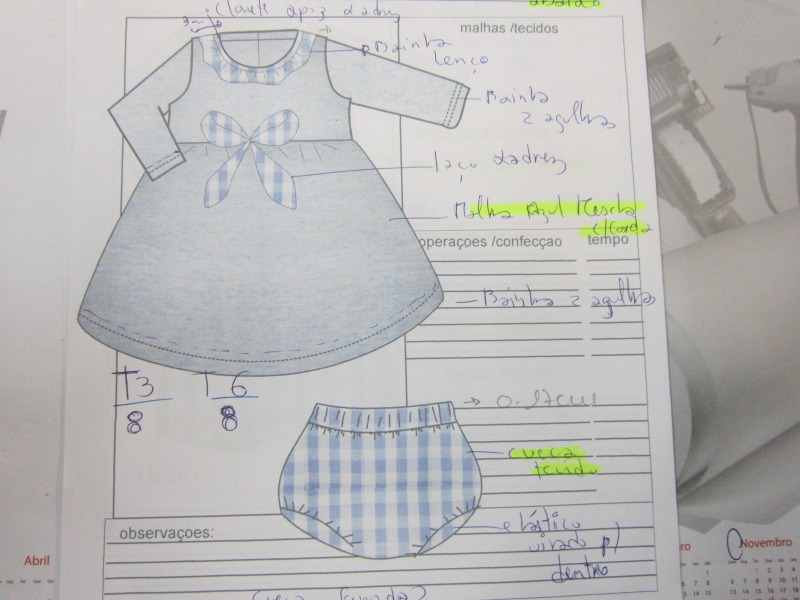 xadrez
malhas /tecidos
Bainha
lenço
Bainha
2 agulhas
laço xadrez
Malha Azul Mescla
Clara
operaçoes /confecçao tempo
Bainha 2 agulhas
T3 T6
8 8
cueca
tecido
elástico
virado p/
dentro
observaçoes:
Abril
Novembro